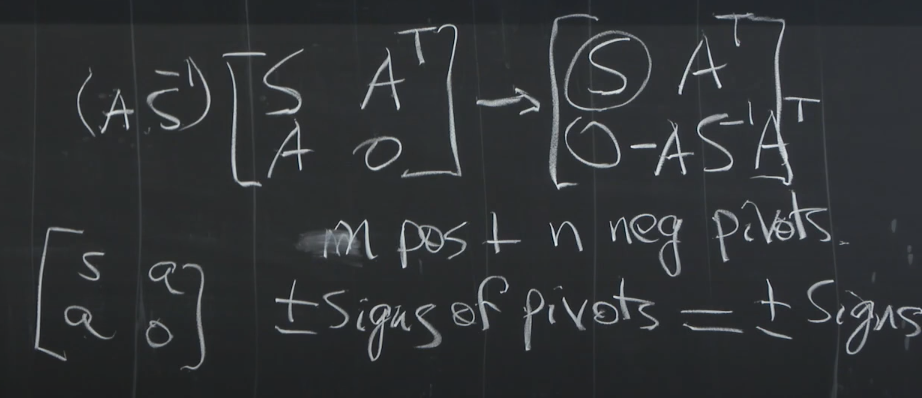 (A S⁻¹) [S Aᵀ; A 0] → [S Aᵀ; 0 -AS⁻¹Aᵀ]
m pos + n neg pivots.
[s a; a 0]
± signs of pivots = ± signs